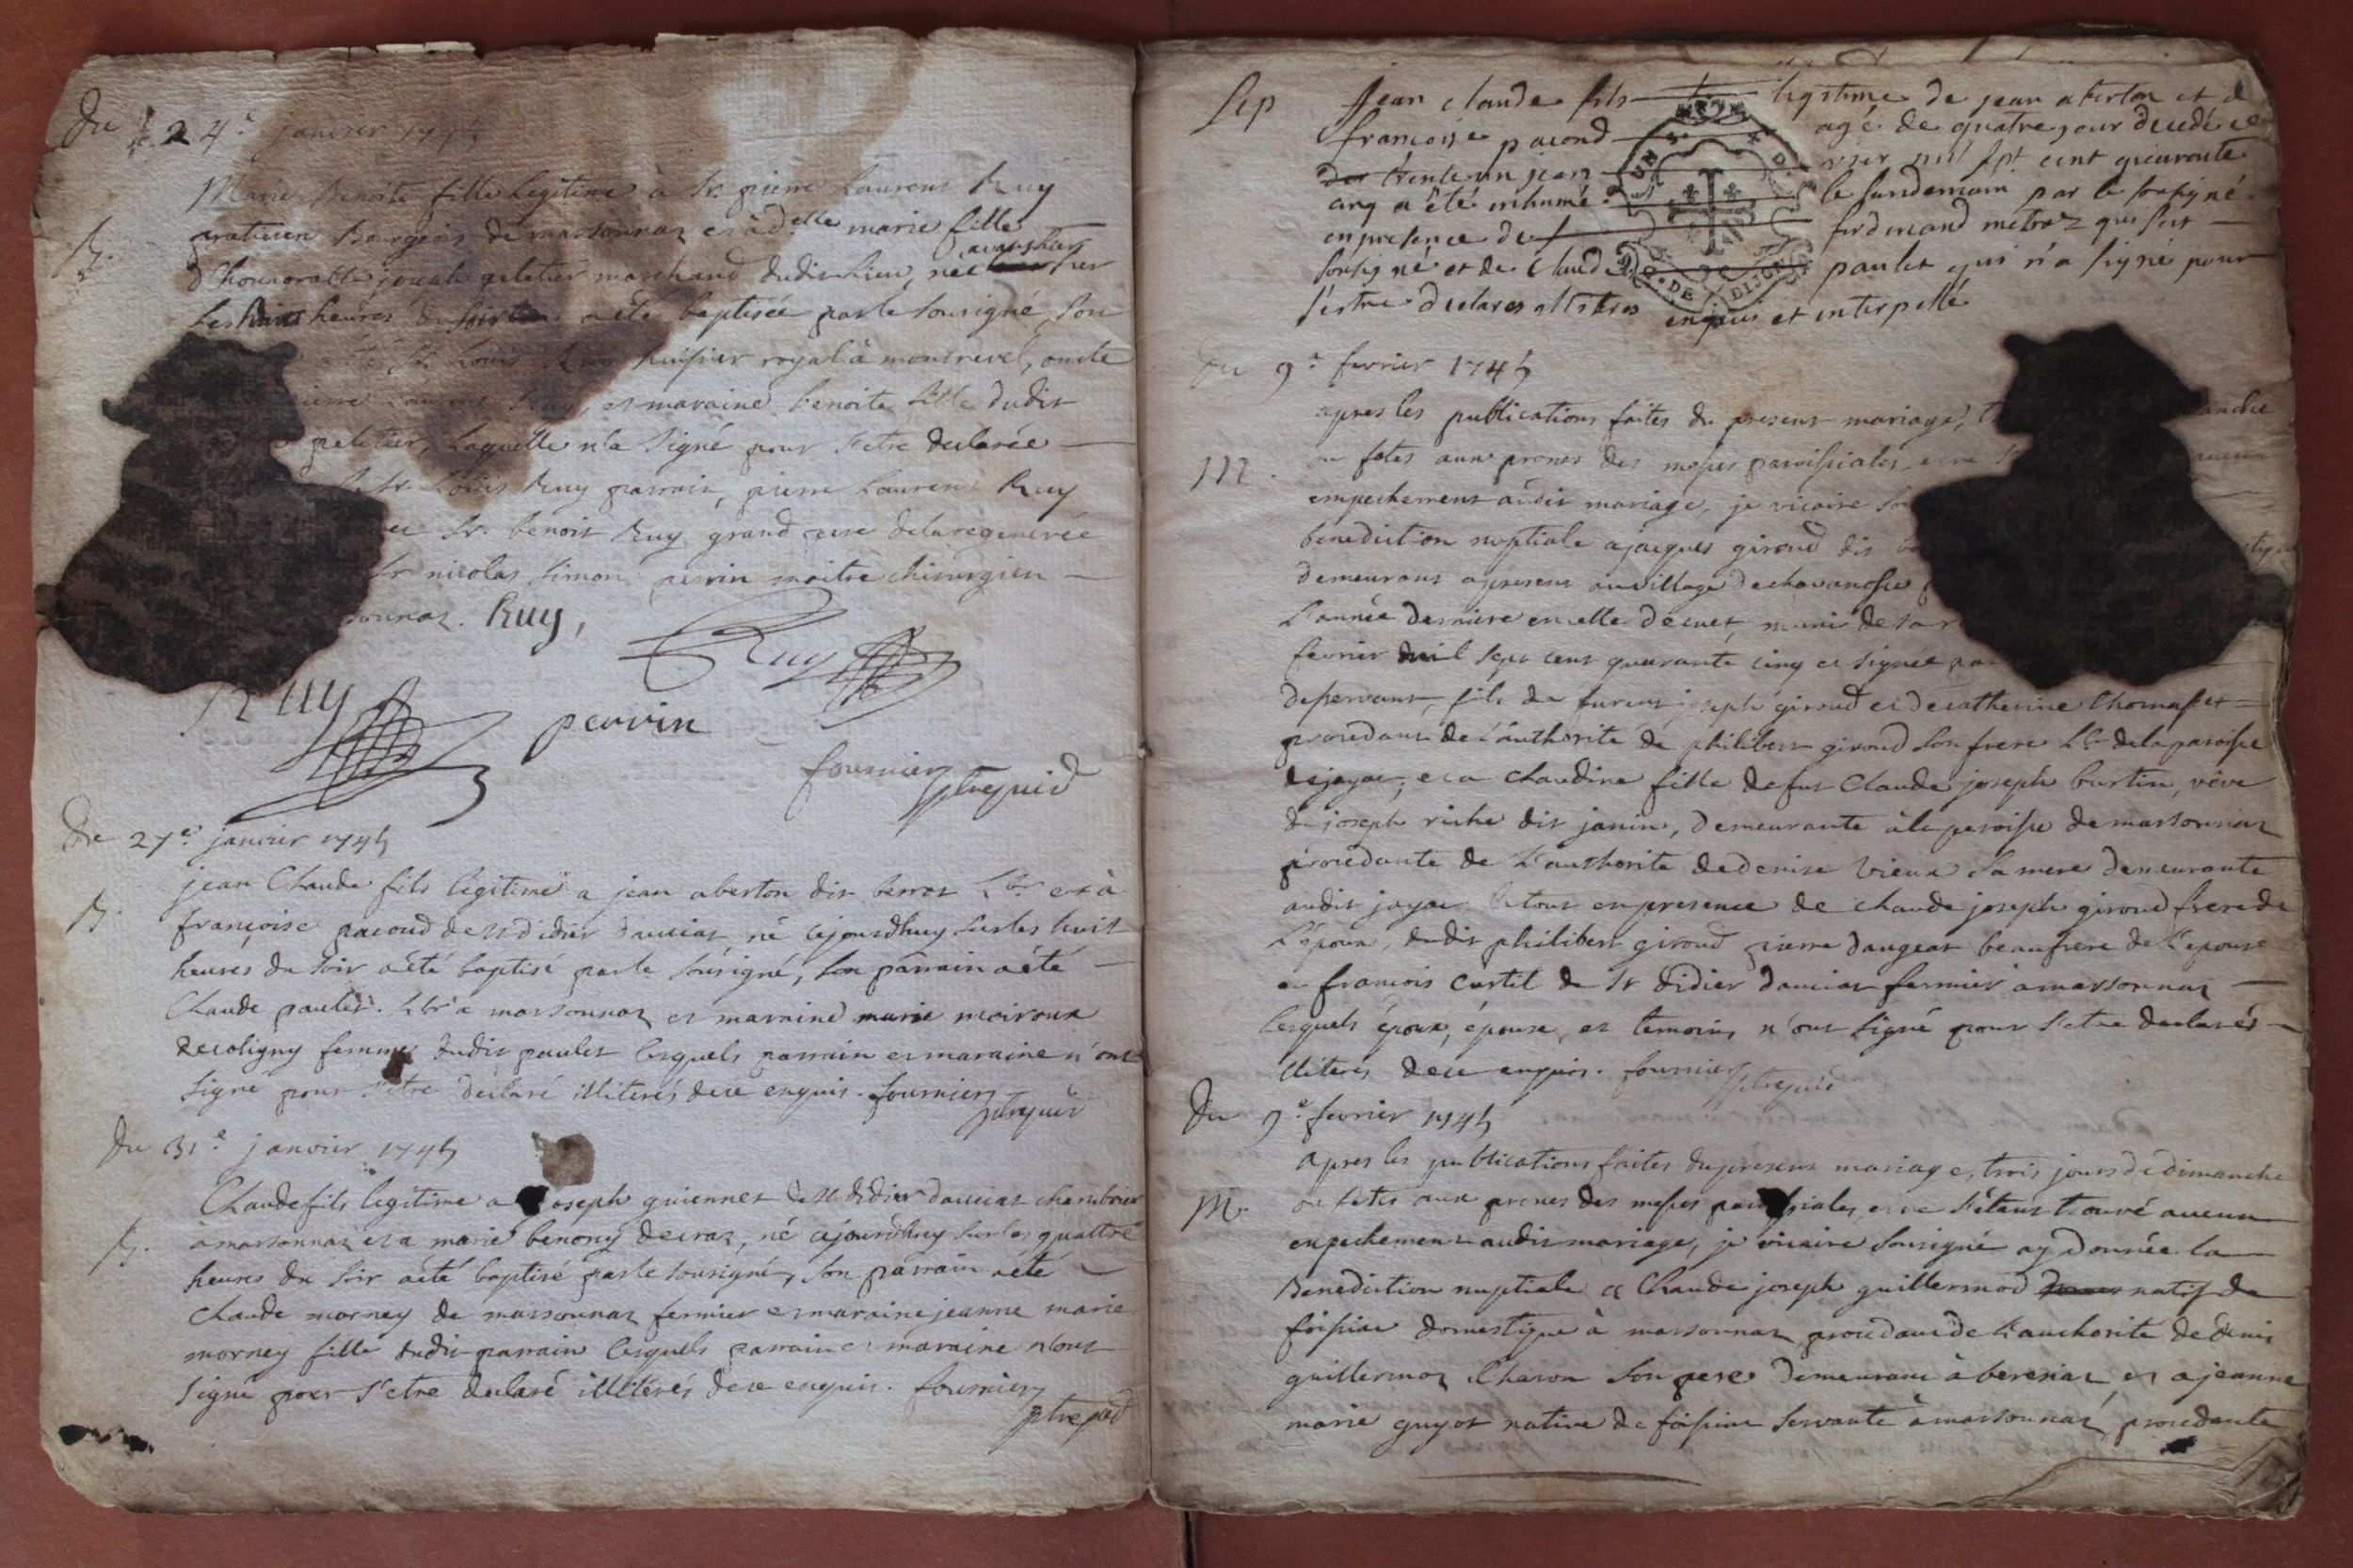 Du 24.e janvier 1745
Marie Benoite fille legitime à Sr. pierre Laurent Ruy
B.
praticien Bourgeois de marsonnaz et à d.elle marie fille
avanthier
d'honorable joseph peletier marchand dudit lieu, née hier
les heures du soir a été baptisée par le sousigné, son
Sr. Louis Ruy huissier royal à montrevel, oncle
pierre Laurent Ruy, et maraine benoite fille dudit
peletier, laquelle n'a signé pour s'etre declarée
Sr. Louis Ruy parrain, pierre Laurent Ruy
Sr. benoit Ruy grand pere de la regenerée
Sr nicolas simon perrin maitre chirurgien
sonnaz. Ruy,
Ruy
Ruy
perrin
fournier
ptre
Du 27.e janvier 1745
jean Claude fils legitime a jean aberton dit berrot Lbr et à
B.
françoise pacoud de St didier d'auciat, né cejourdhuy sur les huit
heures du soir a été baptisé par le sousigné, son parrain a été
Claude paulet Lbr a marsonnaz et maraine marie moiroux
de coligny femme dudit paulet lesquels parrain et maraine n'ont
signé pour s'etre declaré illiterés de ce enquis. fournier
ptre
Du 31.e janvier 1745
Claude fils legitime a joseph guiennet de St didier d'auciat chambrier
B.
à marsonnaz et a marie benony de craz, né cejourdhuy sur les quattre
heures du soir a été baptisé par le sousigné, son parrain a été
Claude morney de marsonnaz fermier et maraine jeanne marie
morney fille dudit parrain lesquels parrain et maraine n'ont
signé pour s'etre declaré illiterés de ce enquis. fournier
ptre
Sep jean claude fils legitime de jean aberton et d
françoise pacoud agé de quatre jour decedé le
trente un jan vier mil sept cent quaranté
cinq a été inhumé le lendemain par le sousigné
en presence de ferdinand metraz qui s'est
sousigné et de claude paulet qui n'a signé pour
s'estre declarés illitéres enquis et interpellé
Du 9.e fevrier 1745
apres les publications faites du present mariage,
M.
ou fetes aux prones des messes paroissiales, et ne
empechement audit mariage, je vicaire
benediction nuptiale a jacques giroud dit
demeurant apresent au village de chavanosse
l'année derniere en celle de muni de
fevrier mil sept cent quarante cinq et signée
desservant, fils de furent joseph giroud et de catherine thomasset
procedant de l'authorité de philibert giroud son frere Lbr de la paroisse
de jayac, et a Claudine fille de fut Claude joseph burtin, veve
de joseph riche dit janin, demeurante à la paroisse de marsonnaz
procedante de l'authorité de denise vieux sa mere demeurante
audit jayac. le tout en presence de claude joseph giroud frere de
l'époux, dudit philibert giroud pierre dangeat beaufrere de l'epouse
et francois curtil de St didier d'auciat fermier a marsonnaz
lesquels époux, épouse, et temoins n'ont signé pour s'etre declarés
illiterés de ce enquis. fournier
ptre
Du 9.e fevrier 1745
apres les publications faites du present mariage, trois jours de dimanche
M.
ou fetes aux prones des messes paroissiales, et ne s'étant trouvé aucun
enpechement audit mariage, je vicaire sousigné ay donnée la
Benediction nuptiale a Claude joseph guillermod natif de
foissiac domestique à marsonnaz procedant de l'authorité de denis
guillermoz Charon son pere demeurant à beresiaz, et a jeanne
marie guyot native de foissiac servante à marsonnaz, procedante